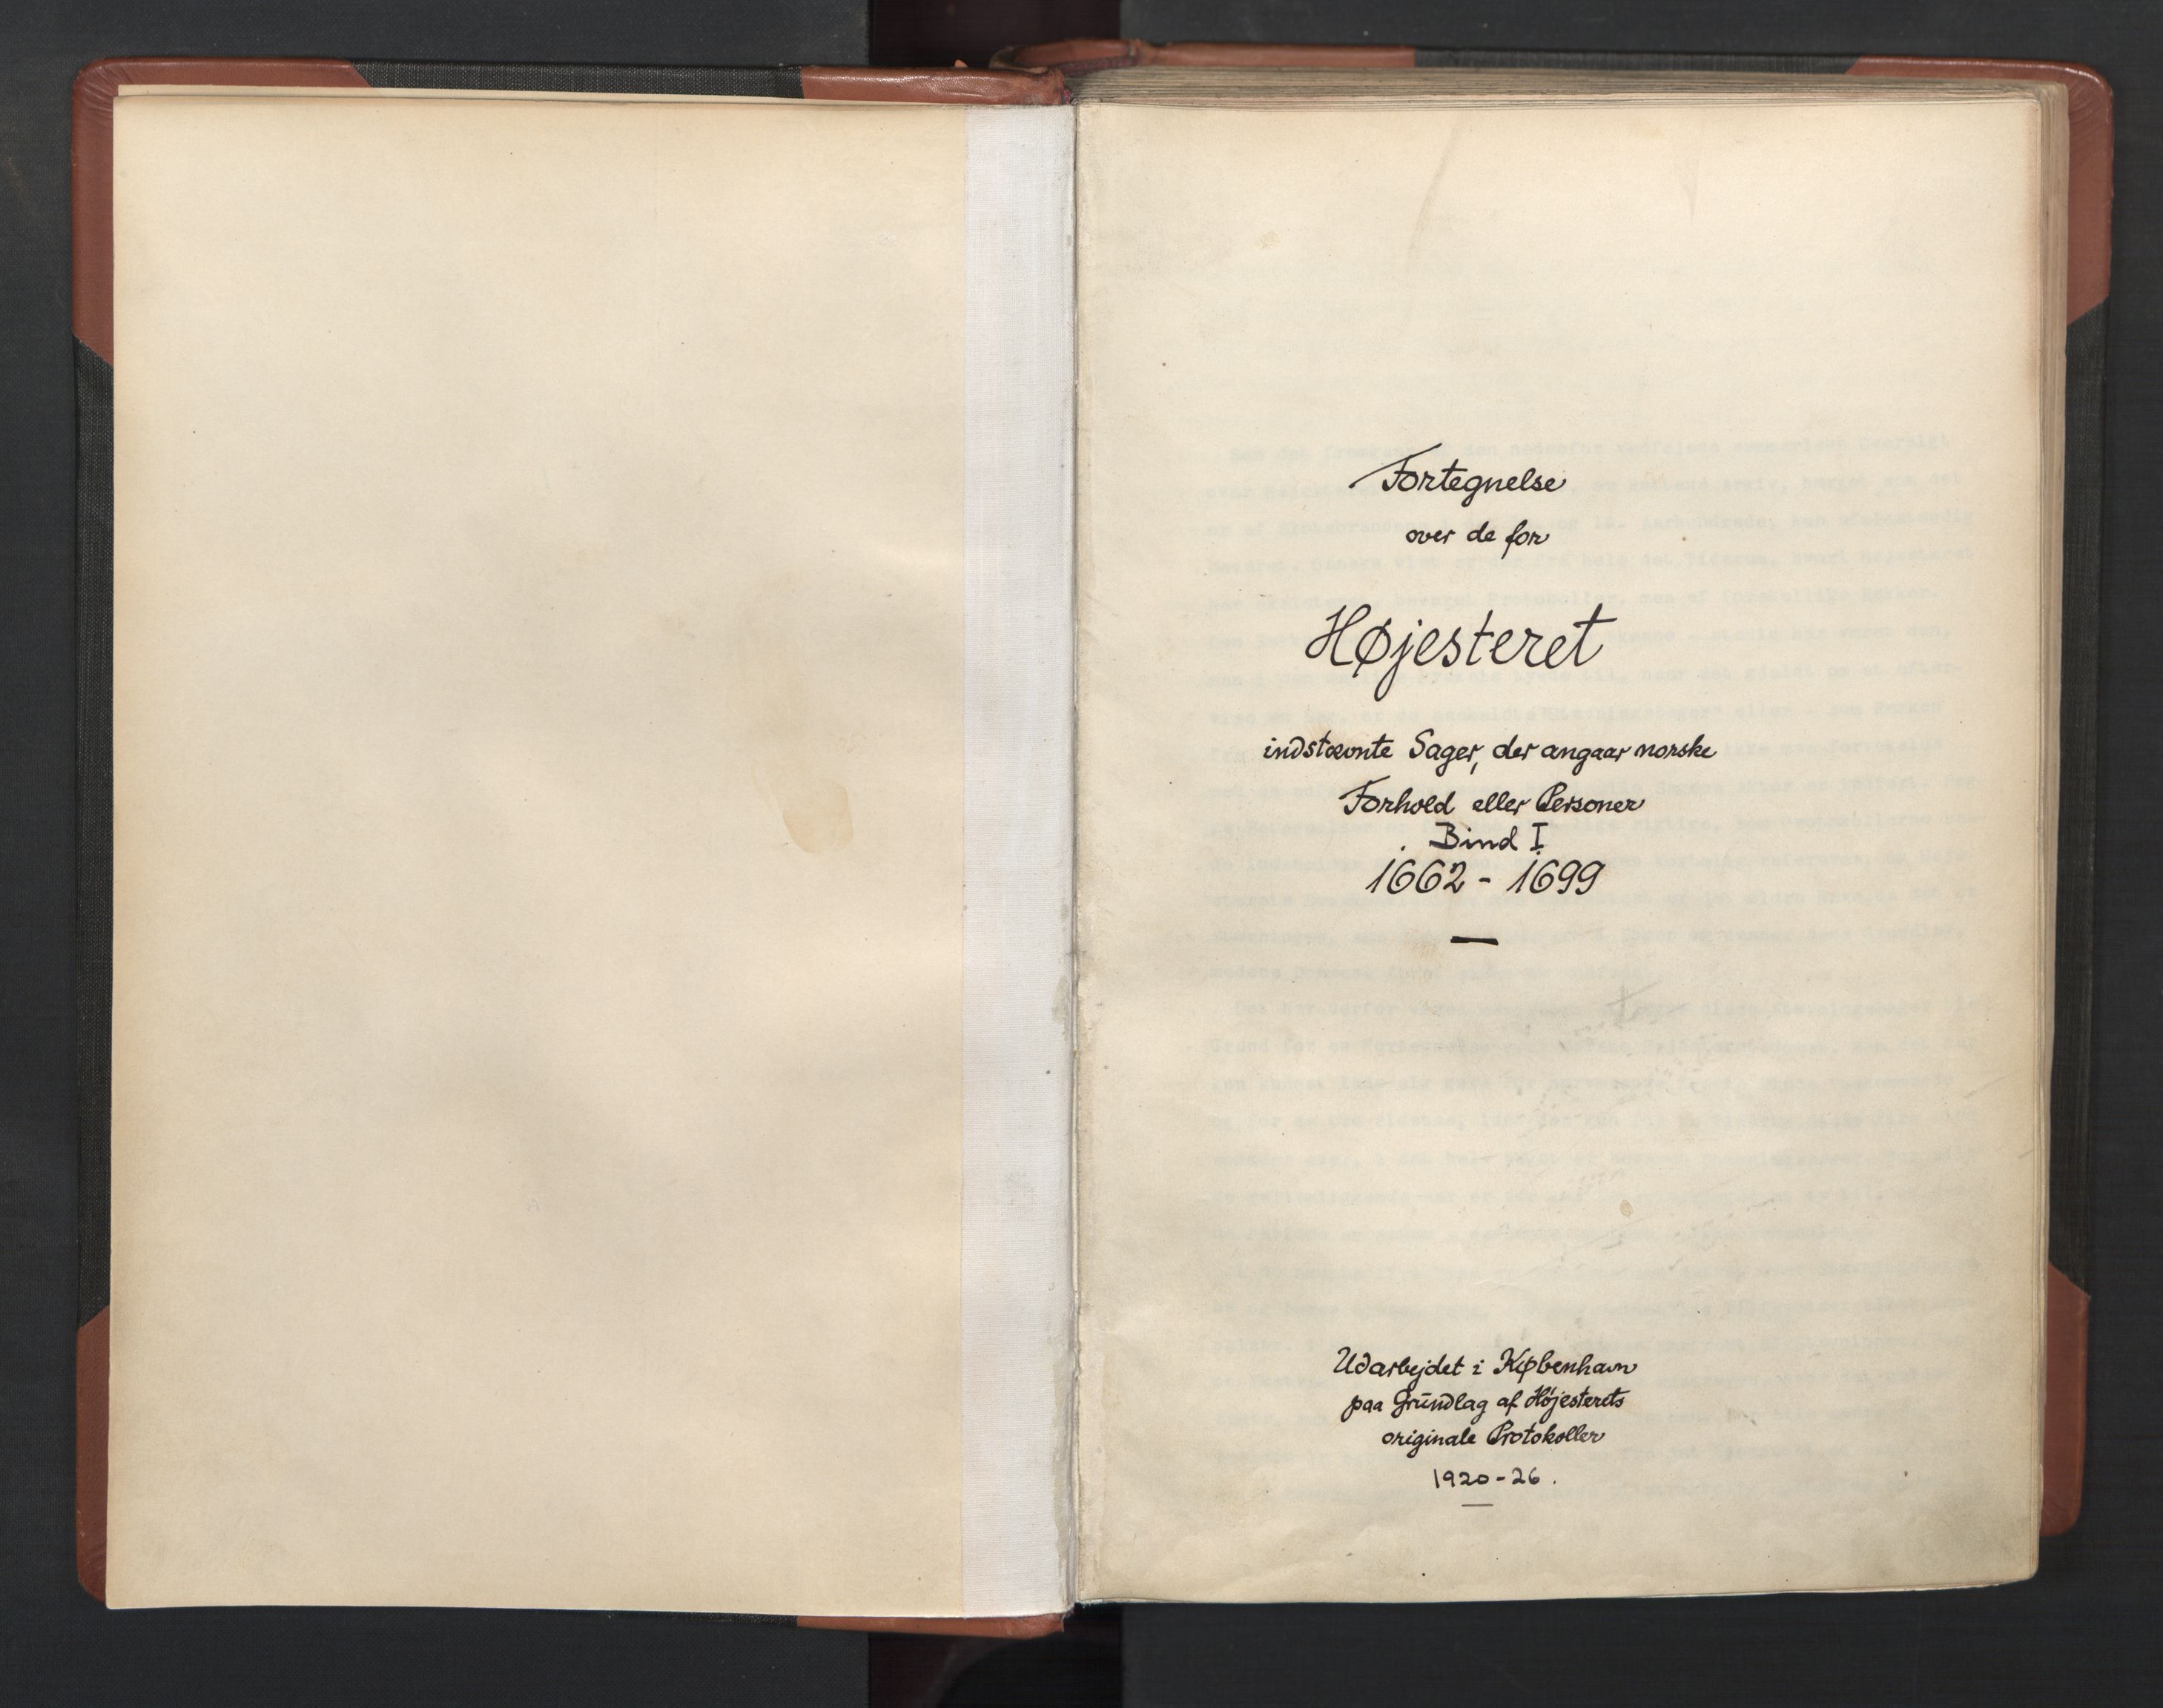 Fortegnelse
over de for
Højesteret
indstævnte Sager, der angaar norske
Forhold eller Personer
Bind I
1662 - 1699
Udarbejdet i København
paa Grundlag af Højesterets
originale Protokoller
1920-26.